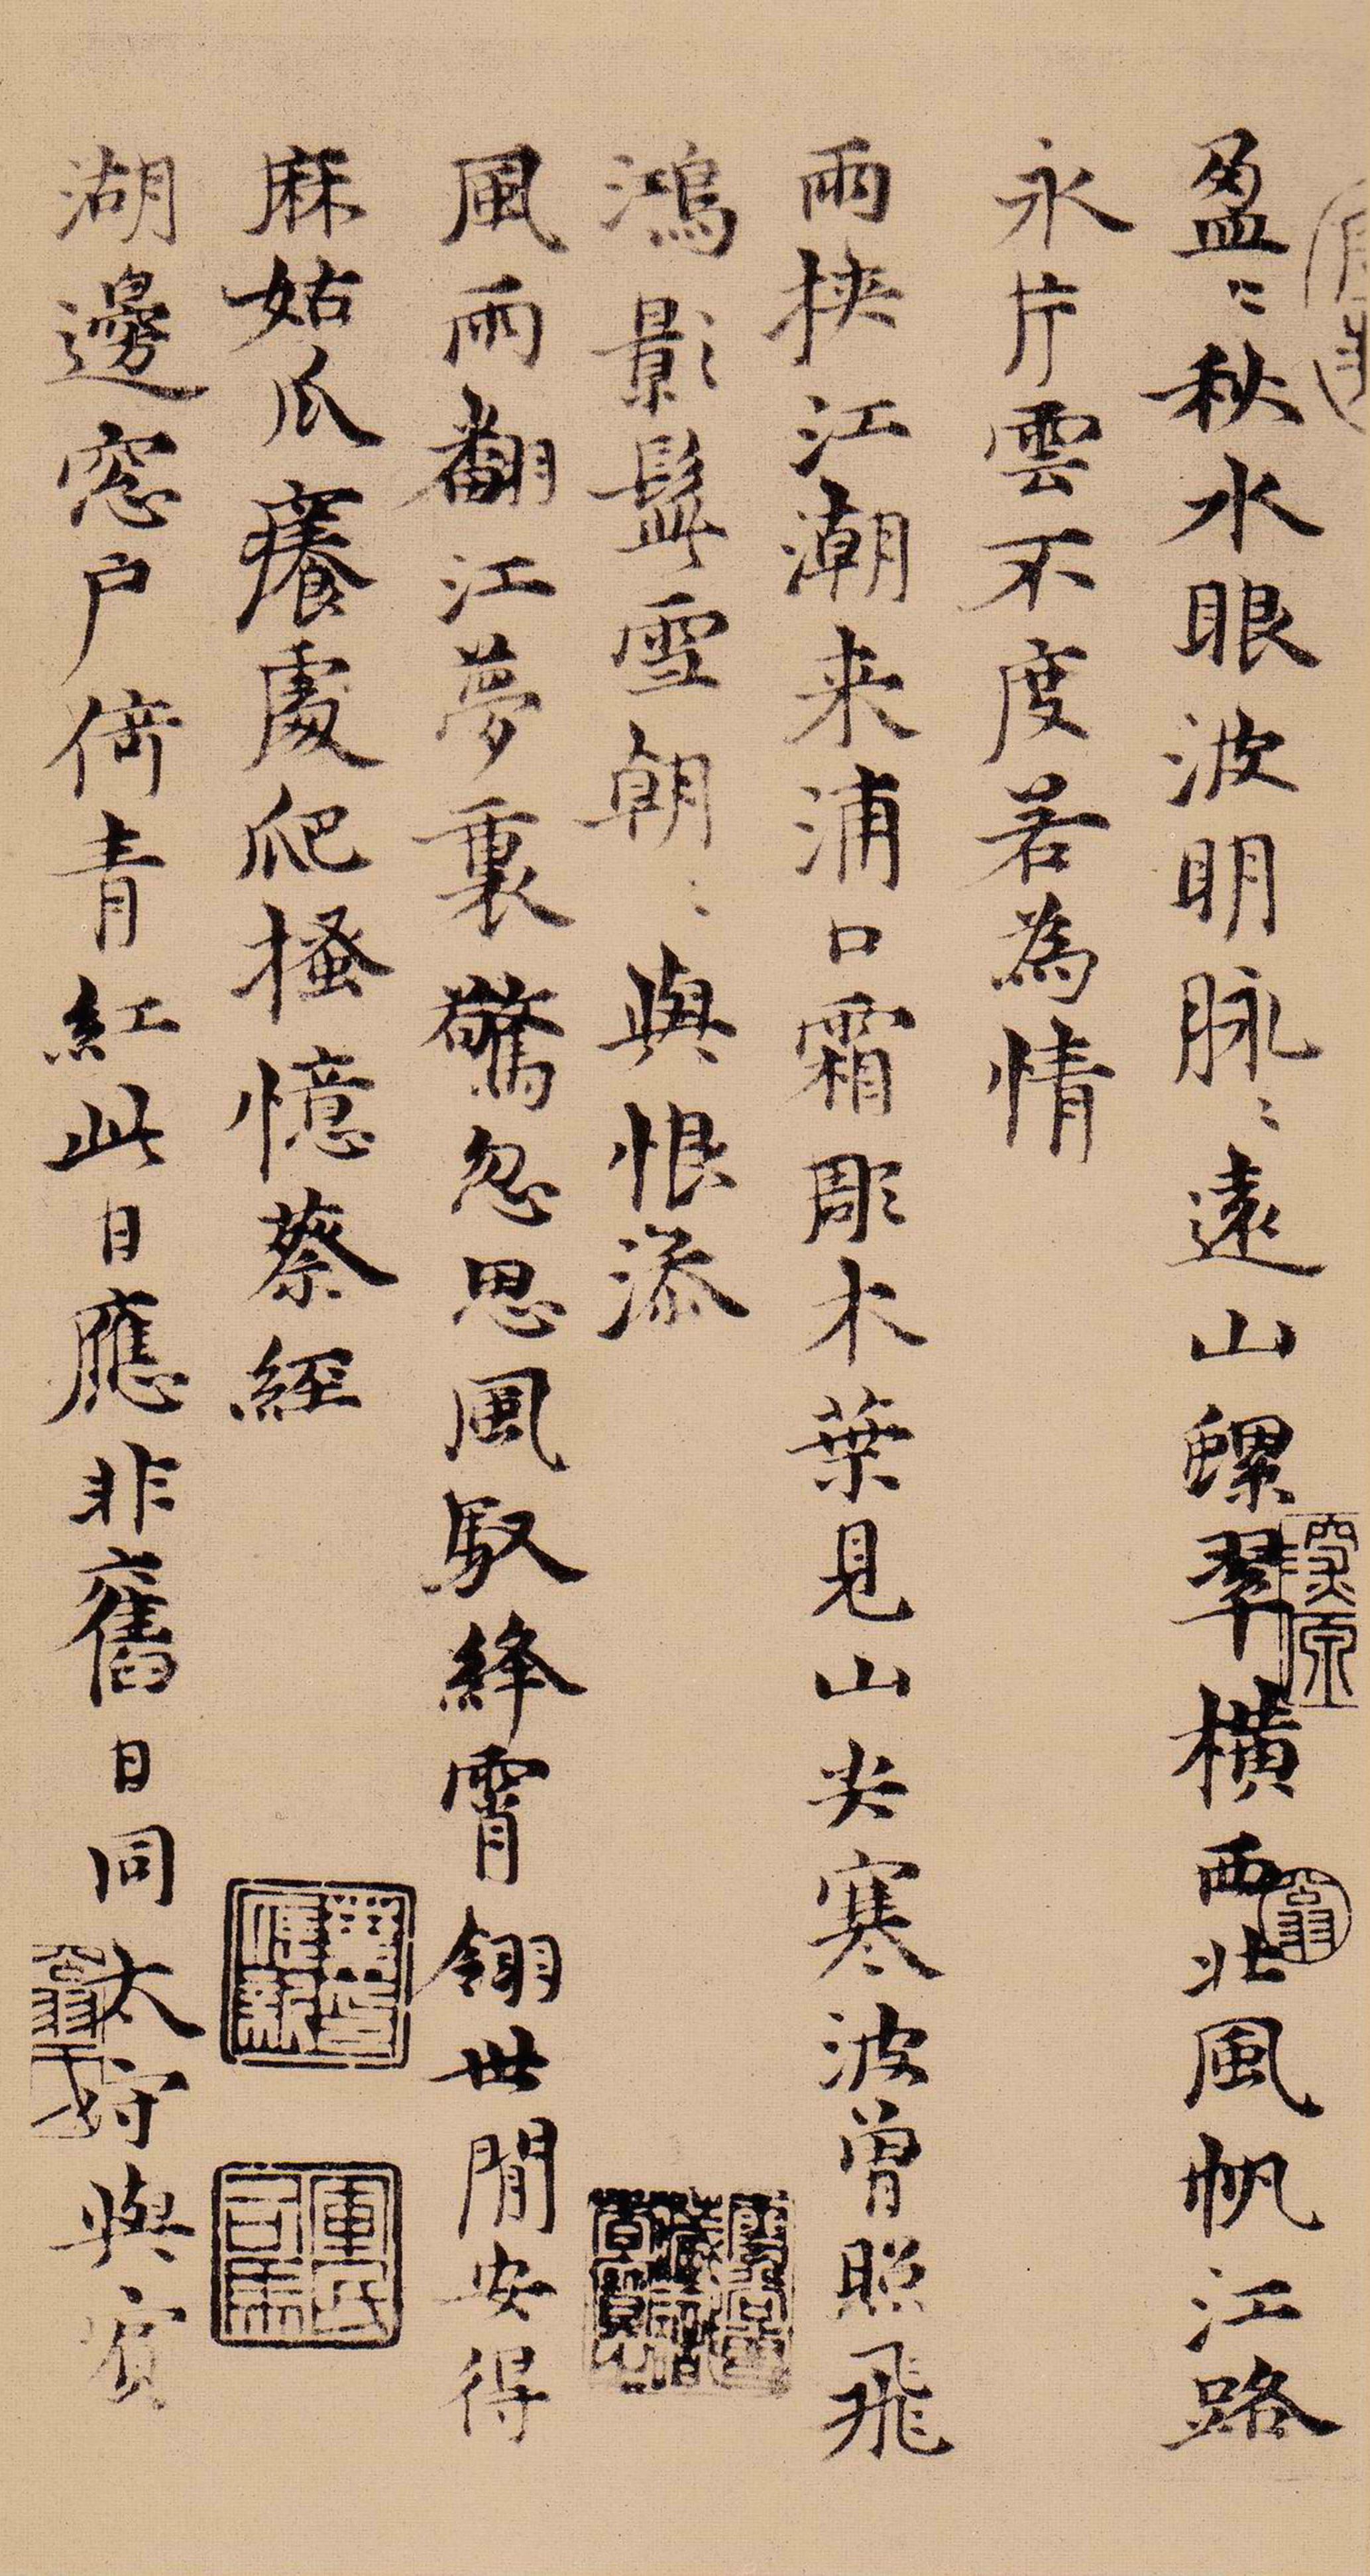 盈〻秋水眼波明脉〻遠山螺翠橫西北風帆江路
永片雲不度若為情
雨挾江潮来浦口霜彫木葉見山尖寒波曾照飛
鴻影髩雪朝〻與恨添
風雨翻江夢裏驚忽思風馭絳霄翎世間安得
麻姑爪癢處爬搔憶蔡經
湖邊窓戶倚青紅此日應非舊日同太守與賓
軍司馬氏